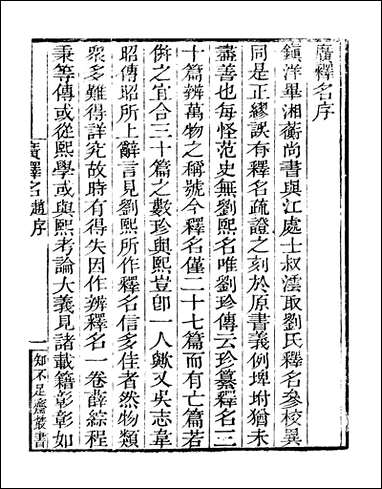 廣釋名序
鎮洋畢湘蘅尚書與江處士叔澐取劉氏釋名參校異
同是正繆誤有釋名疏證之刻於原書義例埤附猶未
盡善也每怪范史無劉熙名唯劉珍傳云珍纂釋名三
十篇辨萬物之稱號今釋名僅二十七篇而有亡篇若
併之宜合三十篇之數珍與熙豈卽一人歟又吳志韋
昭傳昭所上辭言見劉熙所作釋名信多佳者然物類
衆多難得詳究故時有得失因作辨釋名一卷薛綜程
秉等傳或從熙學或與熙考論大義見諸載籍彰彰如
廣釋名趙序
一
知不足齋叢書